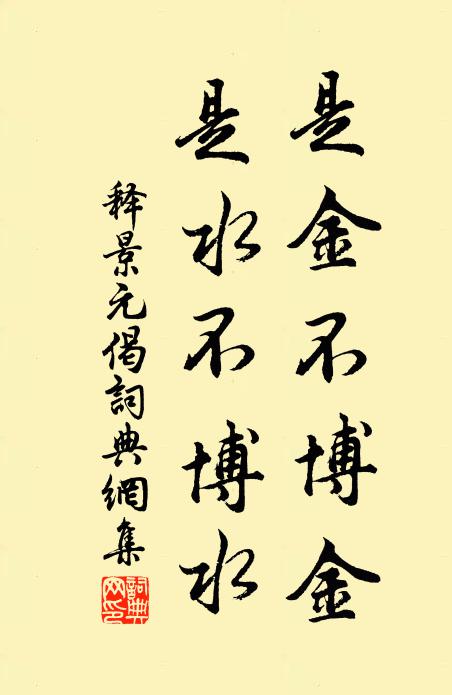 是金不博金
是水不博水
释景元偈詞典網集
詞典網印